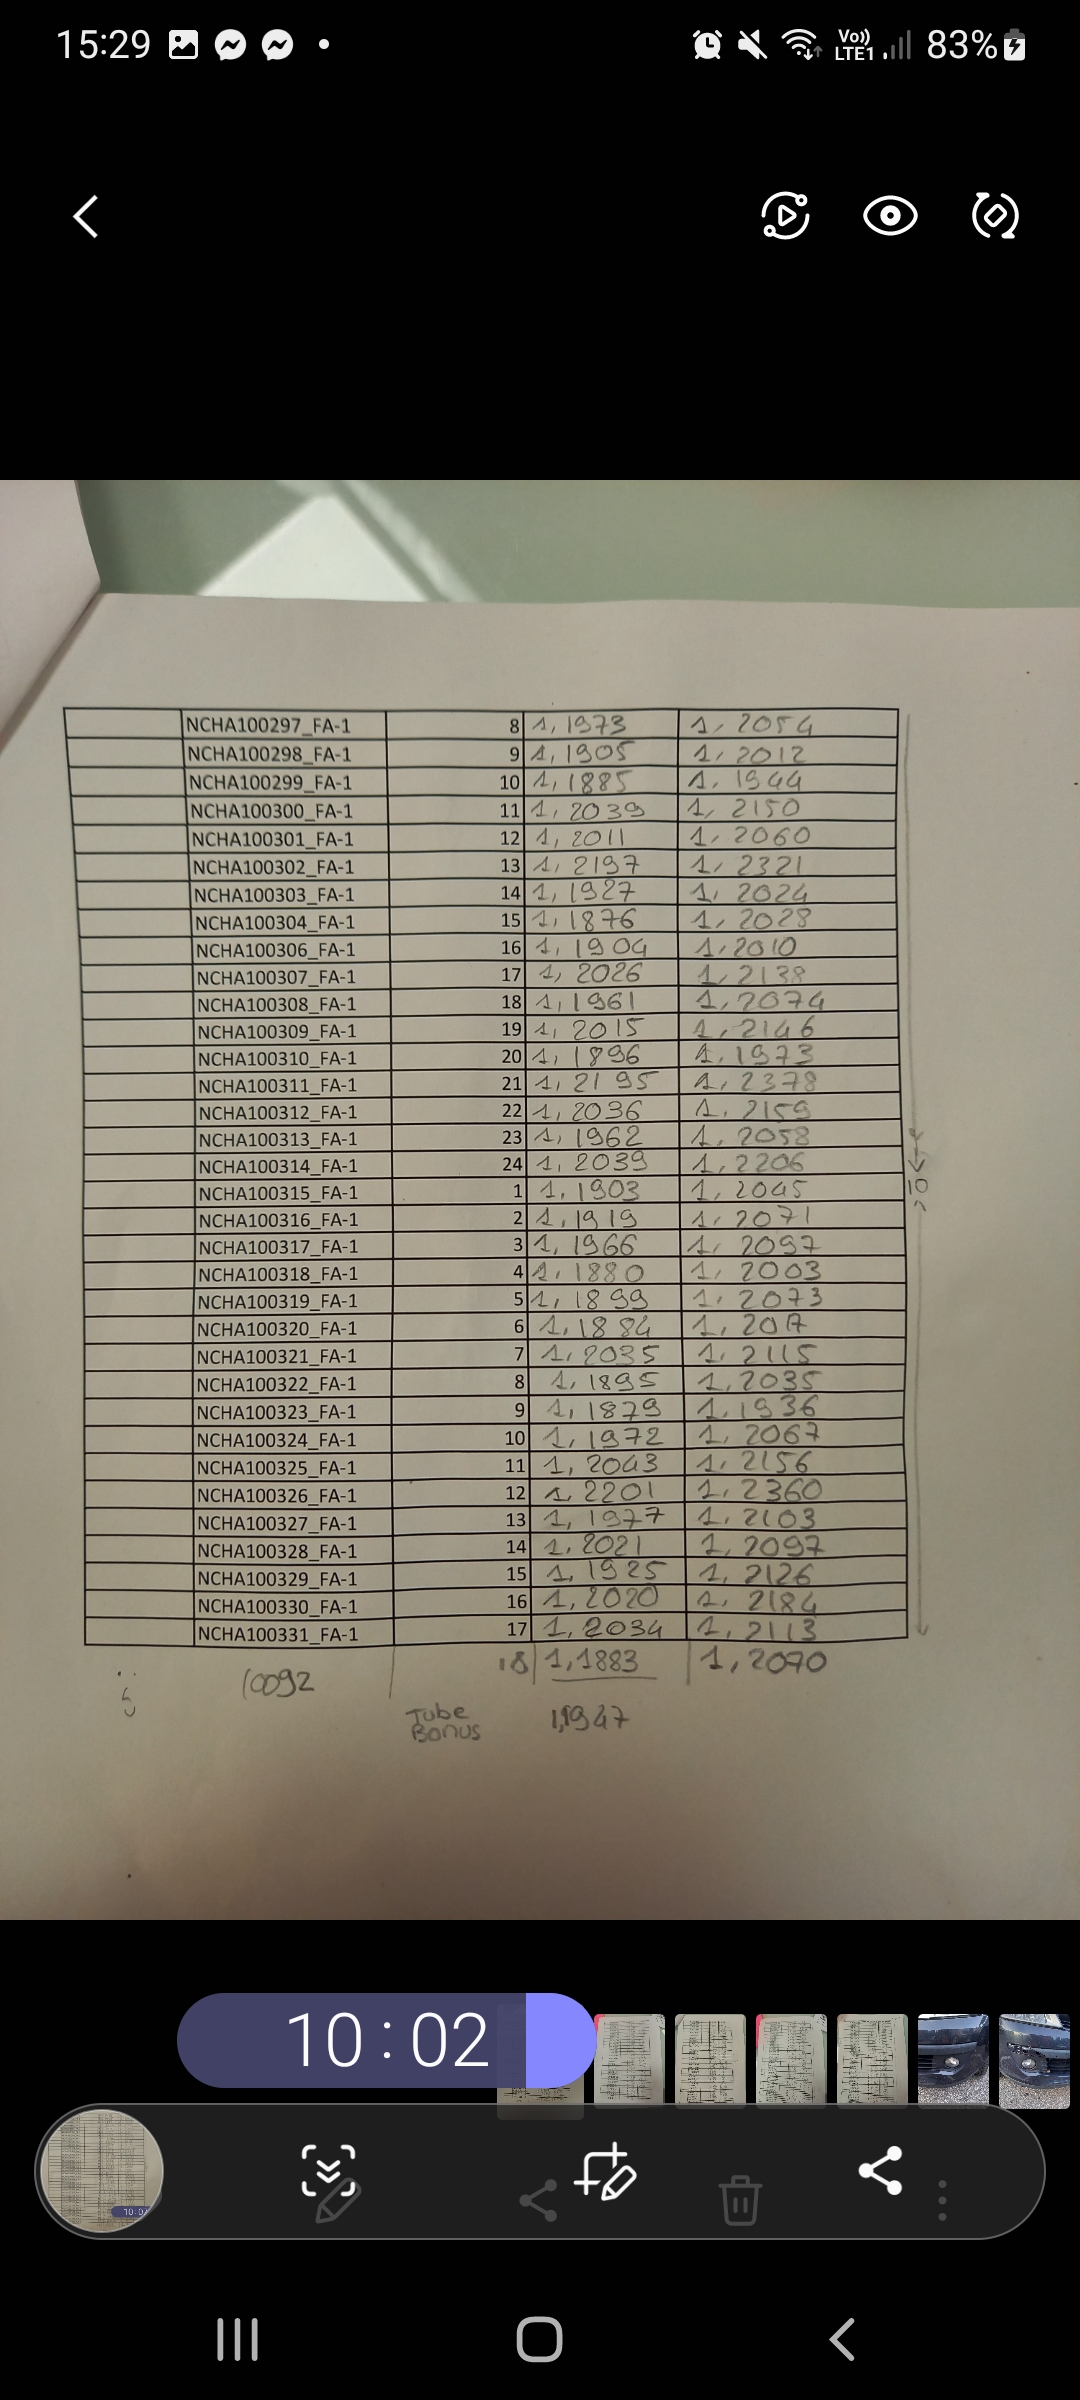 15:29
Vo))
LTE1
83%
NCHA100297_FA-1 8 1,1973 1,2054
NCHA100298_FA-1 9 1,1905 1,2012
NCHA100299_FA-1 10 1,1885 1,1944
NCHA100300_FA-1 11 1,2039 1,2150
NCHA100301_FA-1 12 1,2011 1,2060
NCHA100302_FA-1 13 1,2197 1,2321
NCHA100303_FA-1 14 1,1927 1,2024
NCHA100304_FA-1 15 1,1876 1,2028
NCHA100306_FA-1 16 1,1904 1,2010
NCHA100307_FA-1 17 1,2026 1,2138
NCHA100308_FA-1 18 1,1961 1,2074
NCHA100309_FA-1 19 1,2015 1,2146
NCHA100310_FA-1 20 1,1896 1,1973
NCHA100311_FA-1 21 1,2195 1,2378
NCHA100312_FA-1 22 1,2036 1,2159
NCHA100313_FA-1 23 1,1962 1,2058
NCHA100314_FA-1 24 1,2039 1,2206
NCHA100315_FA-1 1 1,1903 1,2045 10
NCHA100316_FA-1 2 1,1919 1,2071
NCHA100317_FA-1 3 1,1966 1,2097
NCHA100318_FA-1 4 1,1880 1,2003
NCHA100319_FA-1 5 1,1899 1,2073
NCHA100320_FA-1 6 1,1884
NCHA100321_FA-1 7 1,2035 1,2115
NCHA100322_FA-1 8 1,1895 1,2035
NCHA100323_FA-1 9 1,1879 1,1936
NCHA100324_FA-1 10 1,1972 1,2067
NCHA100325_FA-1 11 1,2043 1,2156
NCHA100326_FA-1 12 1,2201 1,2360
NCHA100327_FA-1 13 1,1977 1,2103
NCHA100328_FA-1 14 1,2021 1,2097
NCHA100329_FA-1 15 1,1925 1,2126
NCHA100330_FA-1 16 1,2020 1,2184
NCHA100331_FA-1 17 1,2034 1,2113
10092 18 1,1883 1,2070
Tube
Bonus 1,1947
10:02